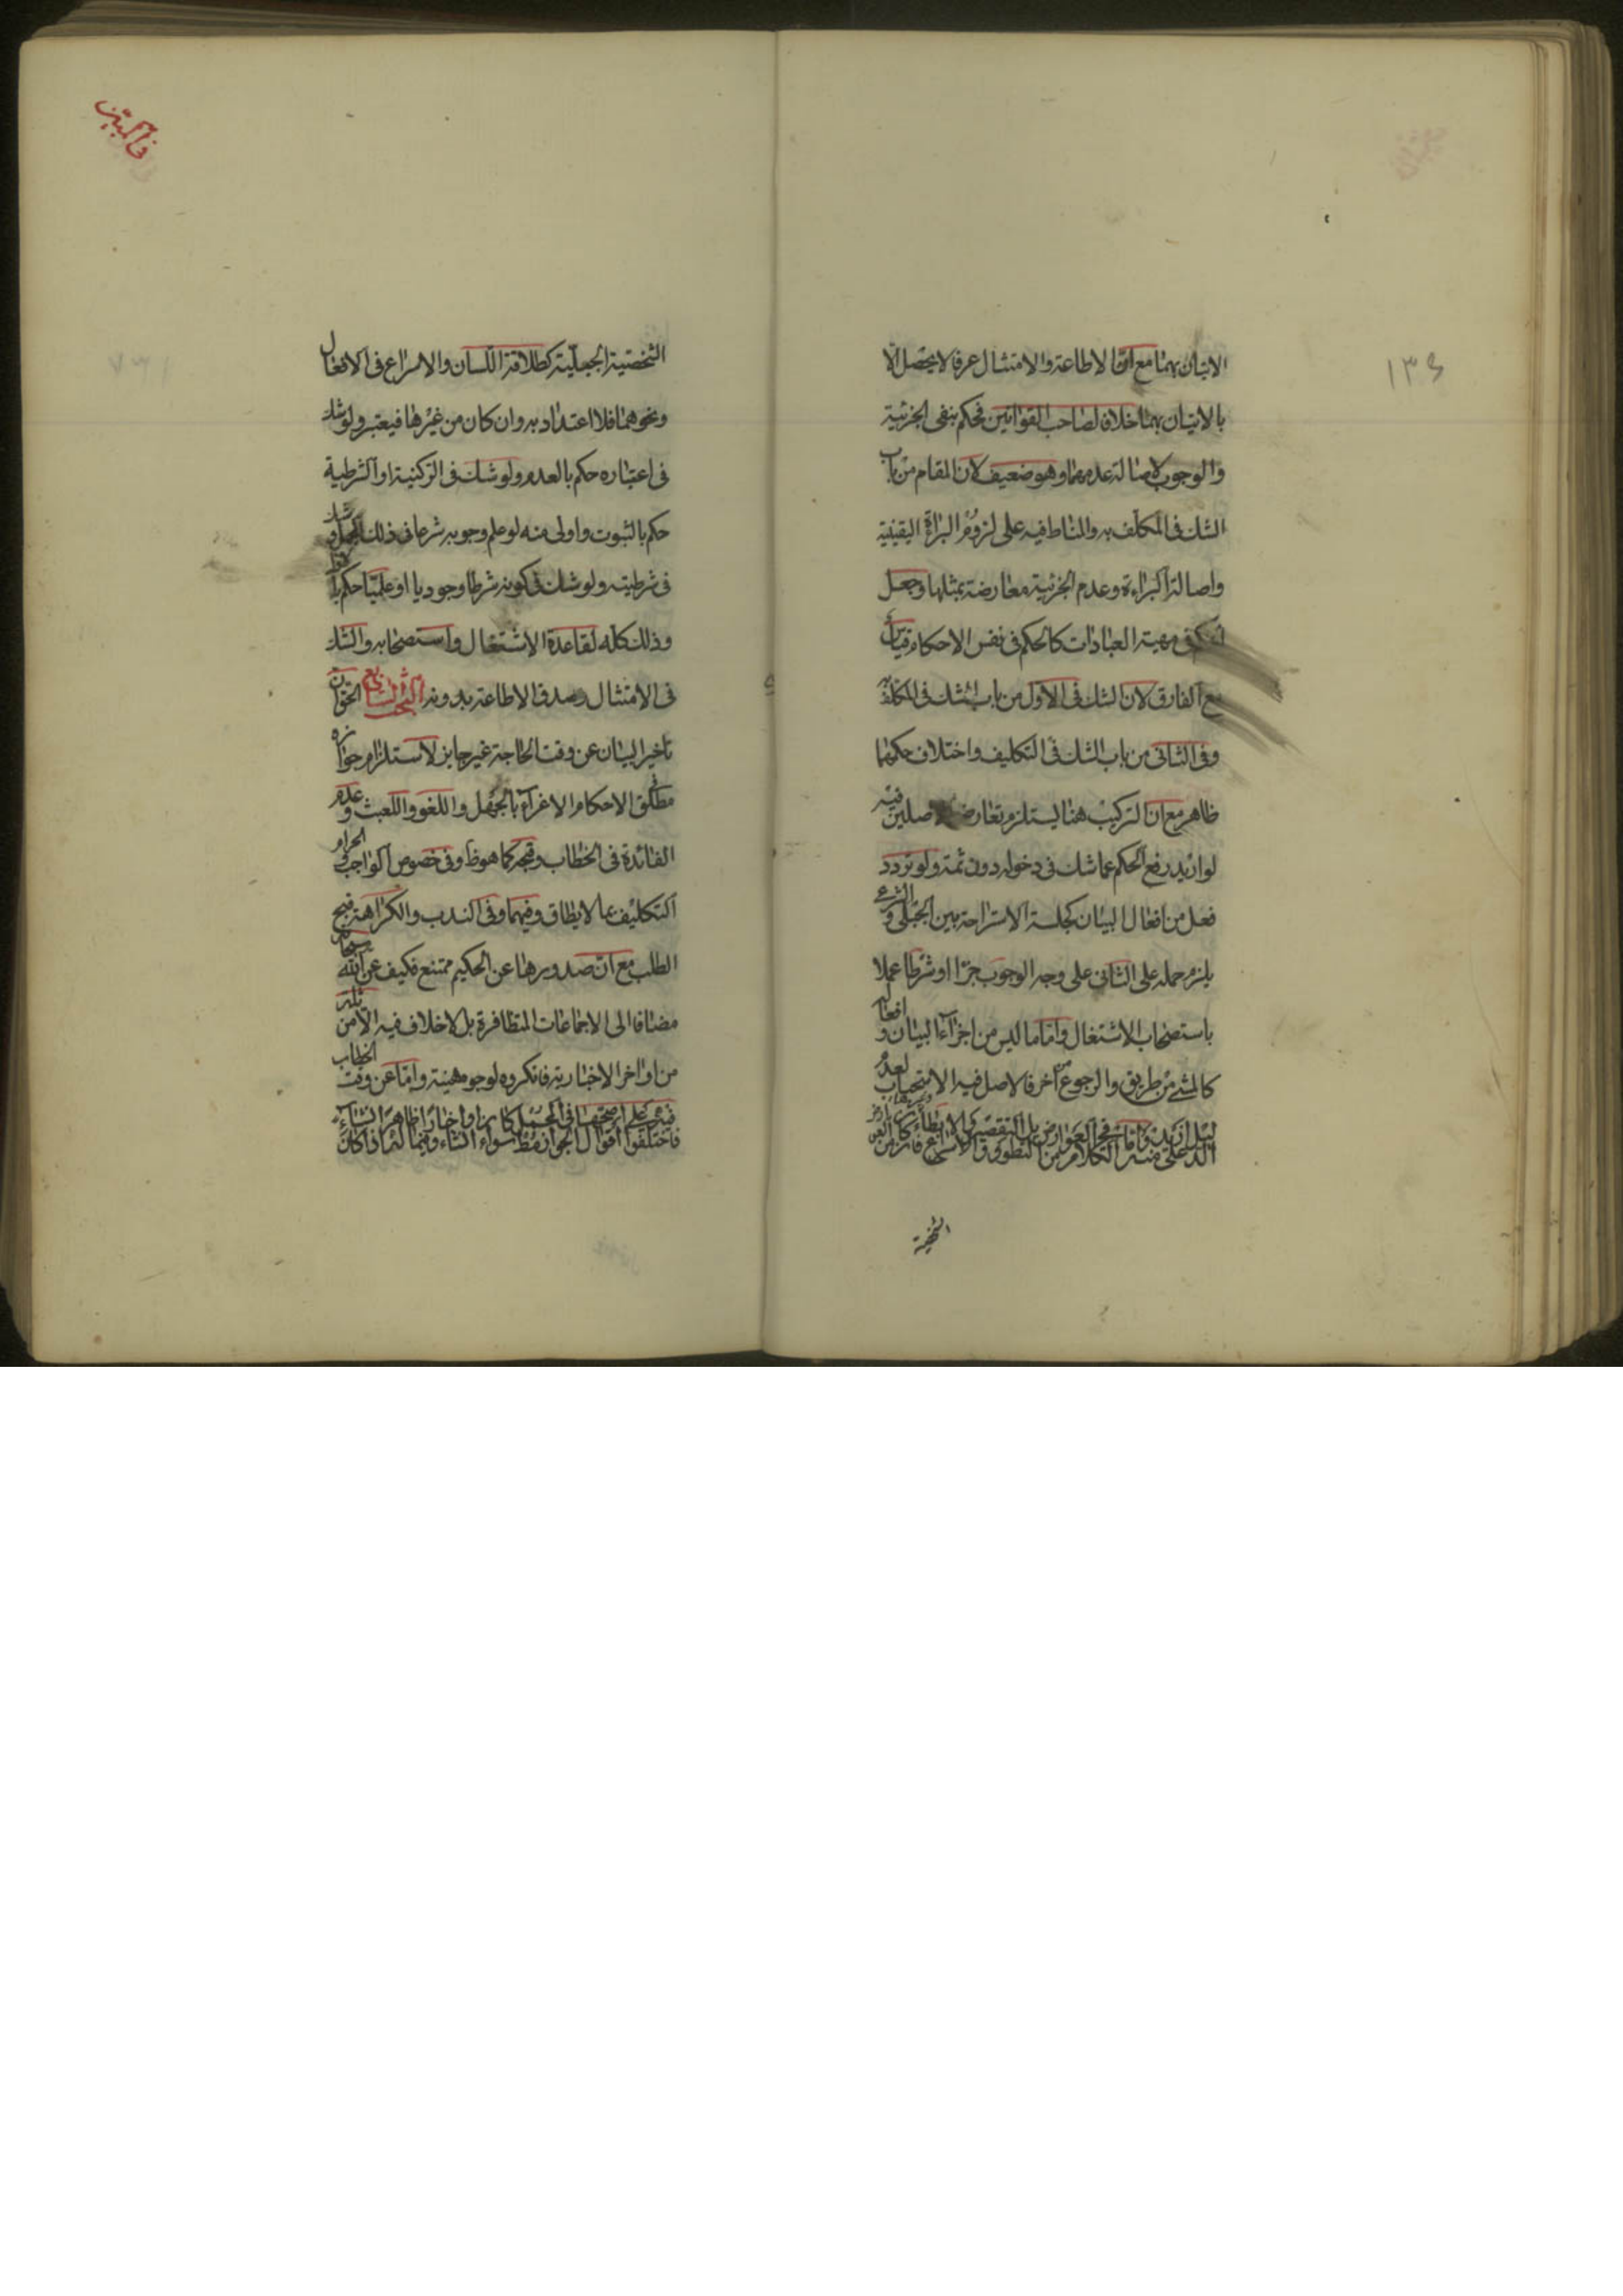 ١٣٤
الاتيان بهما مع ان الاطاعة والامتثال عرفا لا يحصل الا
بالاتيان بهما خلافا لصاحب القوانين فحكم بنفى الجزئية
والوجوب لاصالة عدمهما وهو ضعيف لان المقام من باب
الشك فى المكلف به والمناط فيه على لزوم البراءة اليقينية
واصالة البراءة وعدم الجزئية معارضة بمثلها وجعل
الحكم فى مهية العبادات كالحكم فى نفس الاحكام قياس
مع الفارق لان الشك فى الاول من باب الشك فى المكلف به
وفى الثانى من باب الشك فى التكليف واختلاف حكمهما
ظاهر مع ان التركيب هنا يستلزم تعارض الاصلين فيه
لو اريد رفع الحكم عما شك فى دخوله دون ثمة ولو تردد
فعل من افعال البيان كجلسة الاستراحة بين الجبلى والشرعى
يلزم حمله على الثانى على وجه الوجوب جزءا او شرطا عملا
باستصحاب الاشتغال واما ما ليس من اجزاء البيان وافعاله
كالمشى من طريق والرجوع من آخر فالاصل فيه الاستحباب لعدم
الشخصية
فى المبين
الشخصية الجعلية كطلاقة اللسان والاسراع فى الافعال
ونحوهما فلا اعتداد به وان كان من غيرها فيعتبر ولو شك
فى اعتباره حكم بالعدم ولو شك فى الركنية او الشرطية
حكم بالثبوت واولى منه لو علم وجوبه شرعا فى ذلك العمل وشك
فى شرطيته ولو شك فى كونه شرطا وجوديا او علميا حكم
وذلك كله لقاعدة الاشتغال واستصحابه والشك
فى الامتثال وصدق الاطاعة بدونه البحث السابع الحق ان
تاخير البيان عن وقت الحاجة غير جايز لاستلزام جوازه
مطلق الاحكام الاغراء بالجهل واللغو واللعبث وعدم
الفائدة فى الخطاب وقبحه كما هو ظ وفى خصوص الواجب والحرام
التكليف بما لا يطاق وفيهما وفى الندب والكراهة قبح
الطلب مع ان صدورها عن الحكيم ممتنع فكيف عن الله سبحانه
مضافا الى الاجماعات المتظافرة بل لا خلاف فيه الا من ثلة
من اواخر الاخبارية فانكروه لوجوه هينة واما عن وقت الخطاب